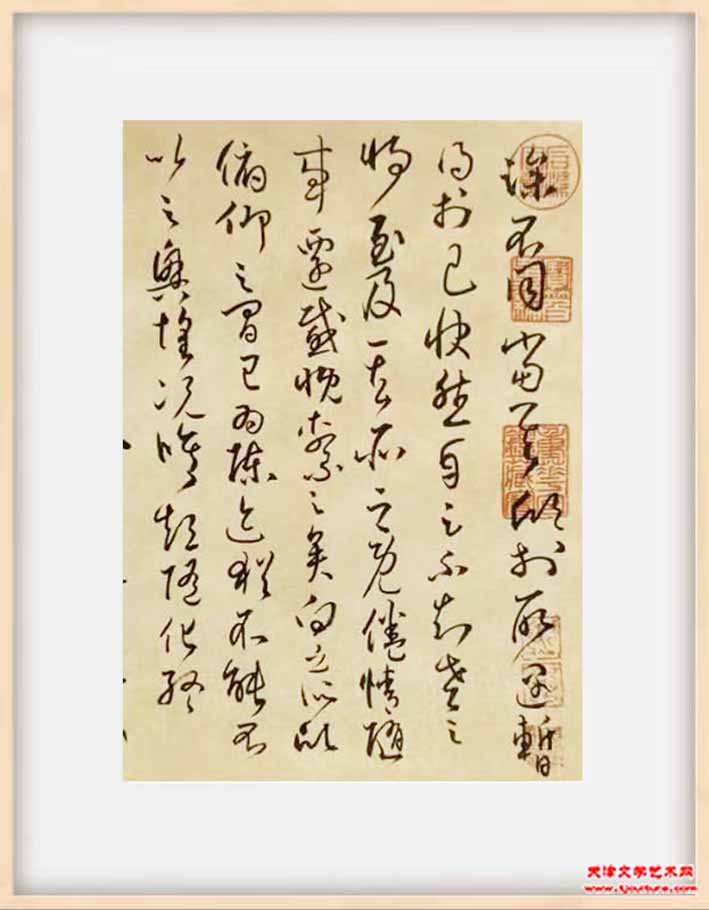 躁不同當其欣於所遇暫
得於己快然自足不知老之
將至及其所之既倦情隨
事遷感慨係之矣向之所欣
俯仰之間已為陳迹猶不能不
以之興懷況脩短隨化終
天津文学艺术网
www.tjculture.com